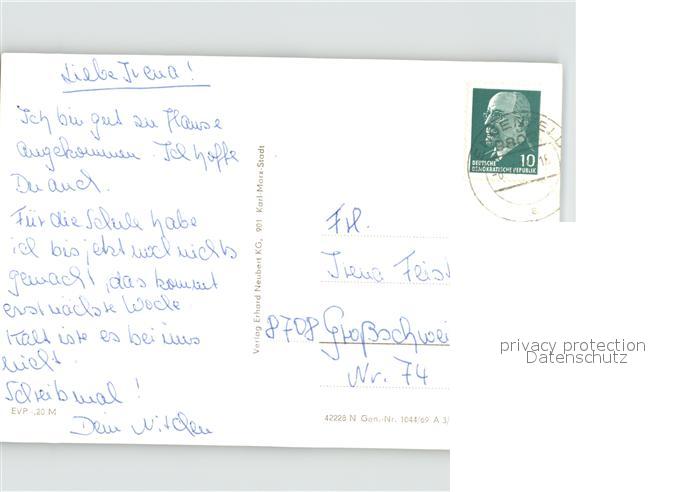 Liebe Irena!
Ich bin gut zu Hause
angekommen. Ich hoffe
Du auch.
Für die Schule habe
ich bis jetzt noch nichts
gemacht, das kommt
erst nächste Woche
Kalt ists es bei uns
nicht.
Schreib mal!
Dein
EVP -,20 M
Verlag Erhard Neubert KG, 901 Karl-Marx-Stadt
10
DEUTSCHE
DEMOKRATISCHE REPUBLIK
Frl.
Irena Feist
8708 Großschwei
Nr. 74
42228 N Gen.-Nr. 1044/69 A 3/
privacy protection
Datenschutz